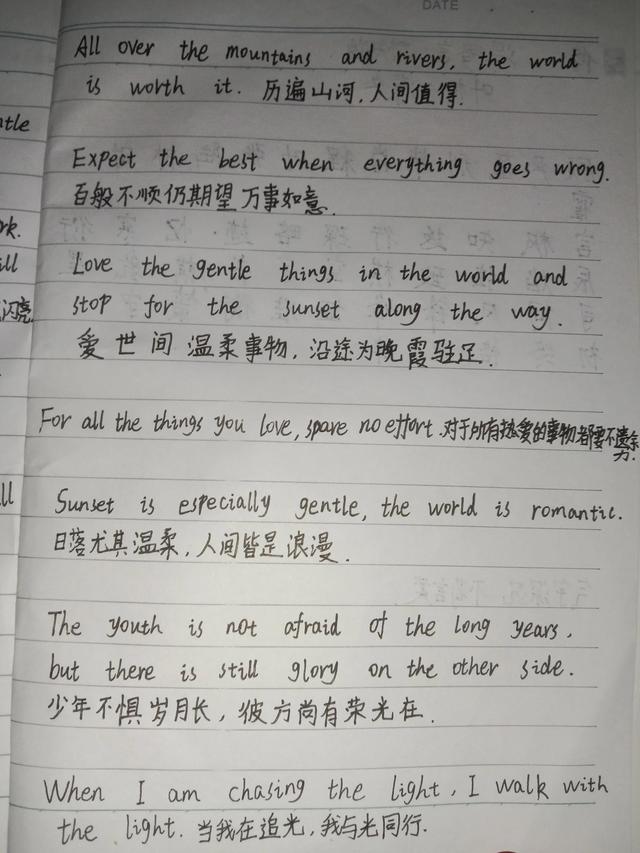 DATE
All over the mountains and rivers, the world
is worth it. 历遍山河,人间值得.
Expect the best when everything goes wrong.
百般不顺仍期望万事如意.
Love the gentle things in the world and
stop for the sunset along the way.
爱世间温柔事物,沿途为晚霞驻足.
For all the things you love, spare no effort.对于所有热爱的事物都要不遗余
力.
Sunset is especially gentle, the world is romantic.
日落尤其温柔,人间皆是浪漫.
The youth is not afraid of the long years,
but there is still glory on the other side.
少年不惧岁月长,彼方尚有荣光在.
When I am chasing the light, I walk with
the light. 当我在追光,我与光同行.